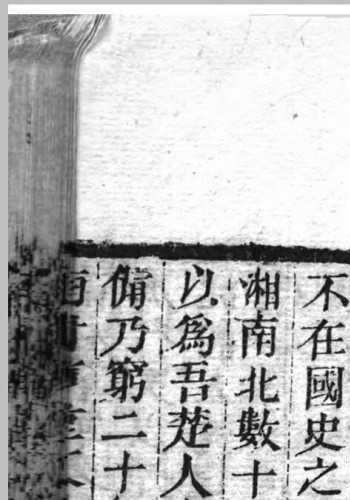 不在國史之
湘南北數十
以爲吾楚人
備乃窮二十